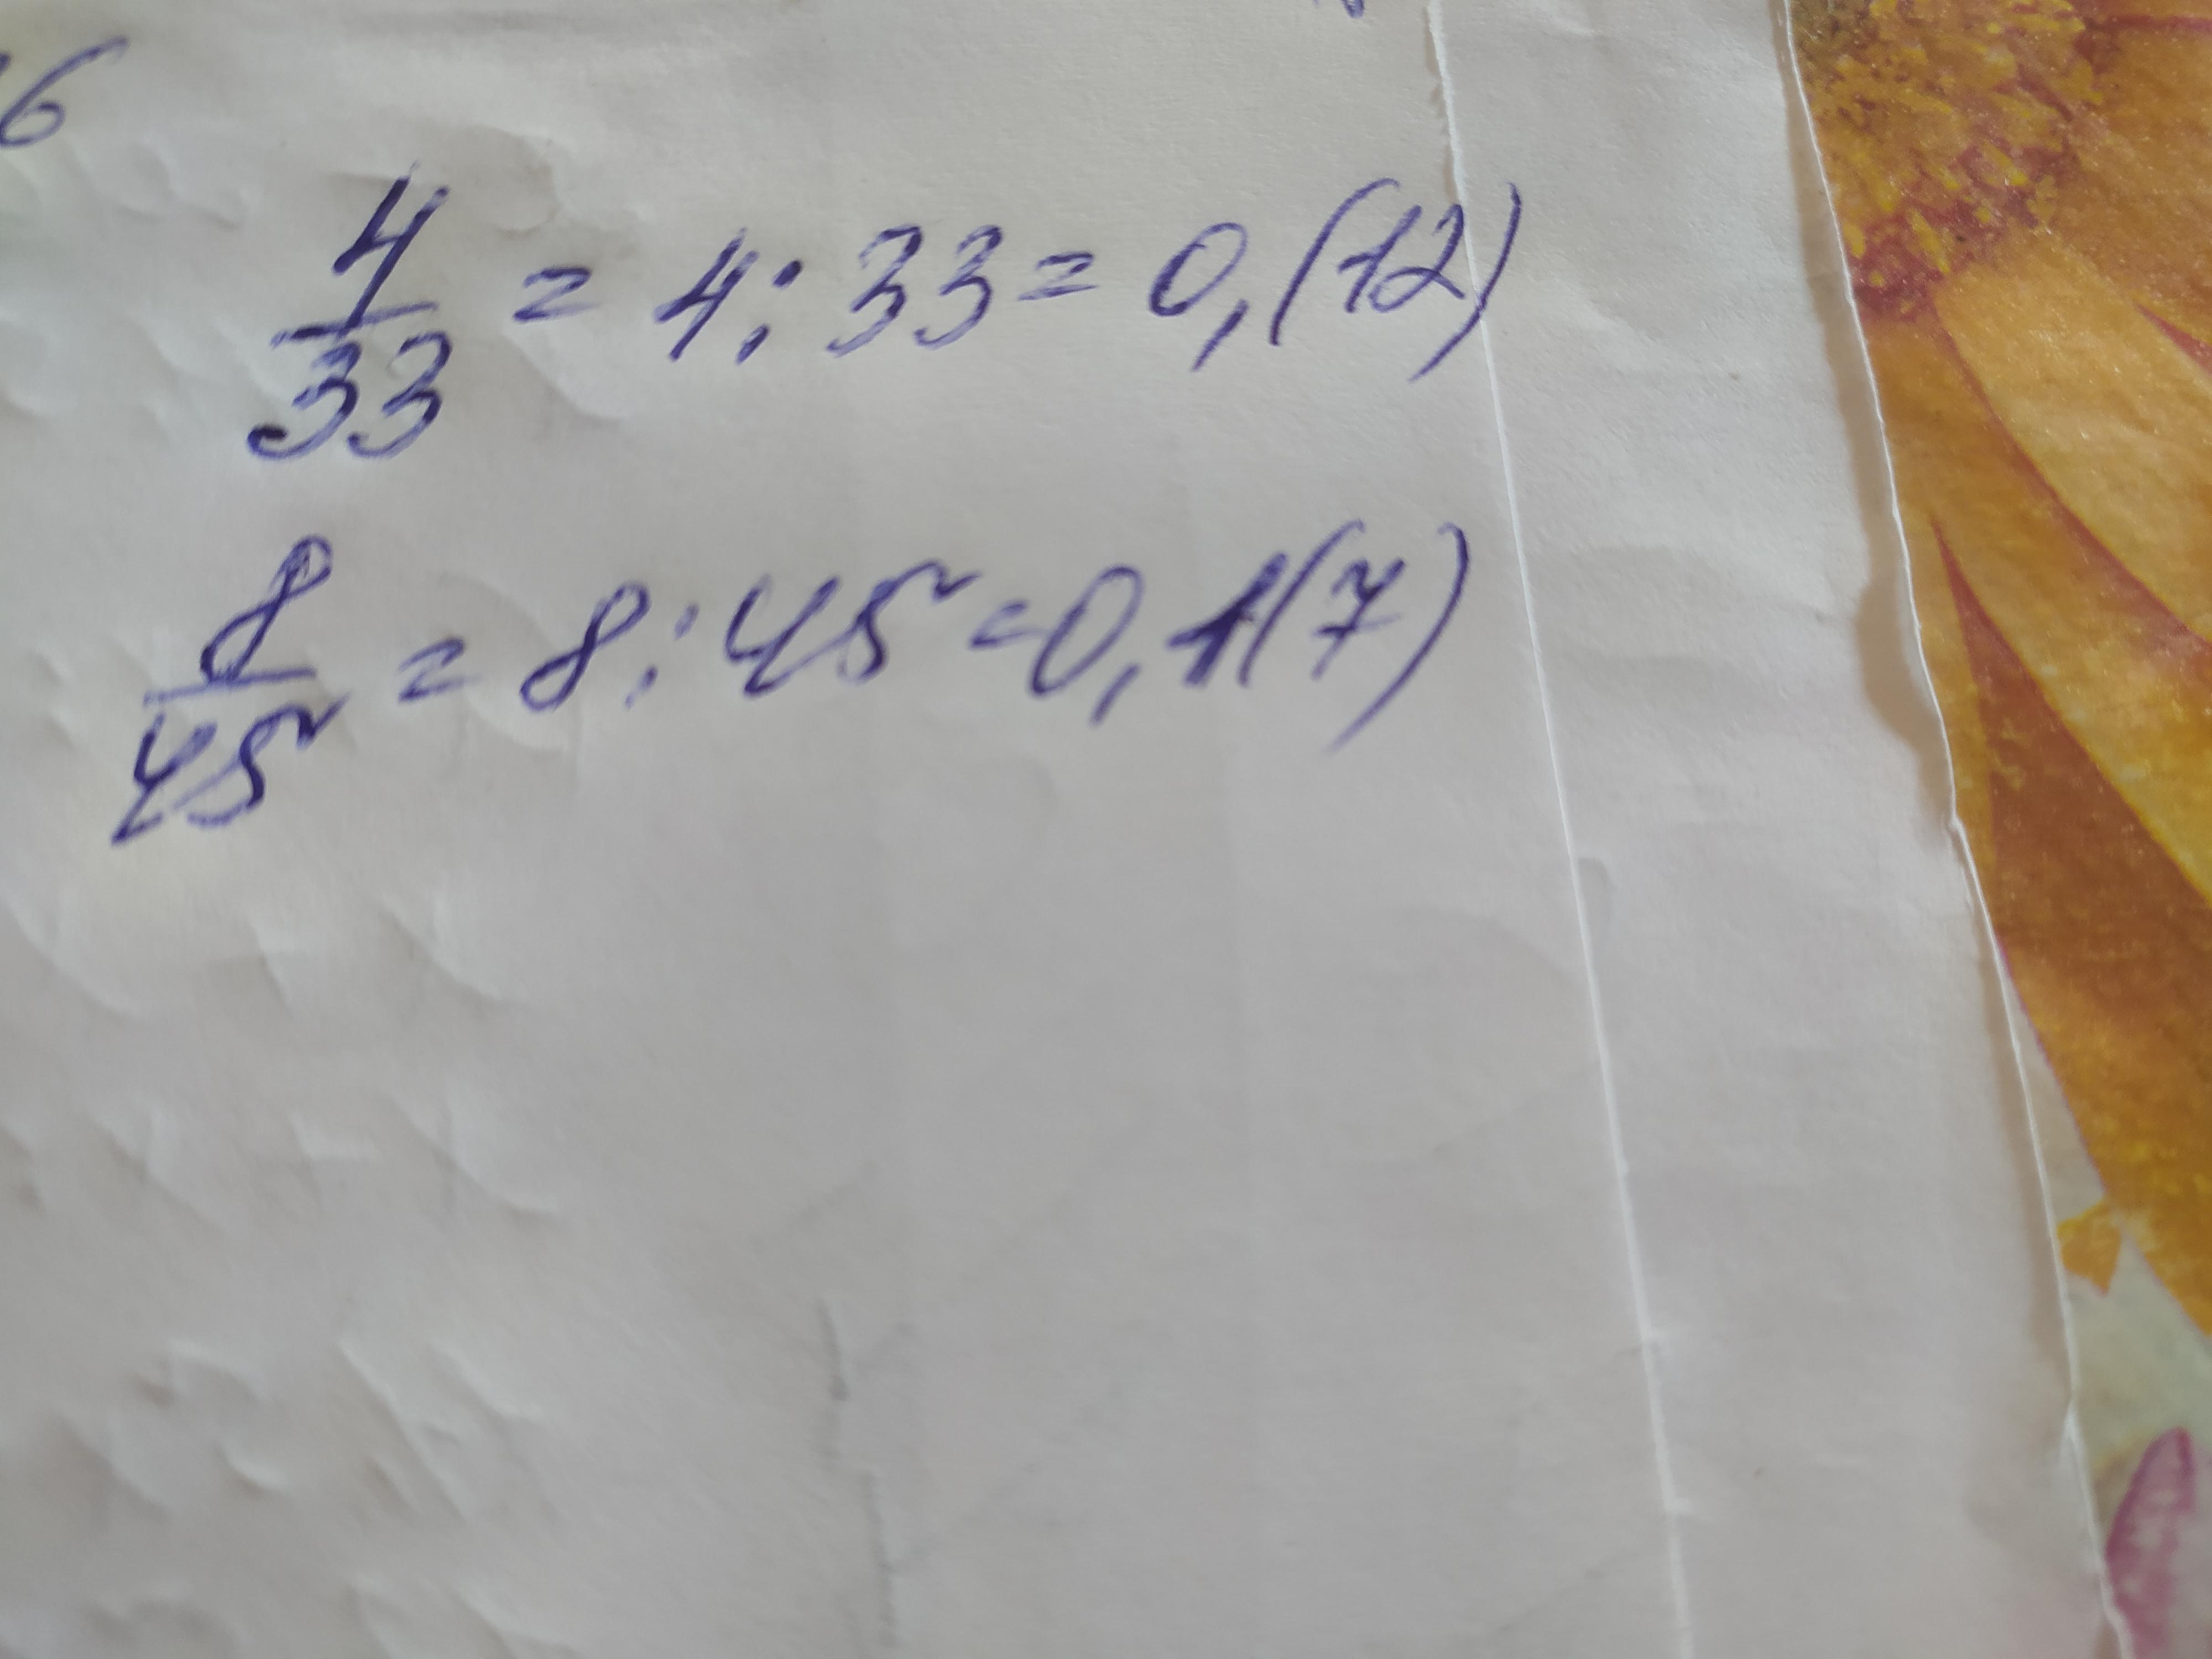 6
4/33 = 4 : 33 = 0,(12)
8/45 = 8 : 45 = 0,1(7)